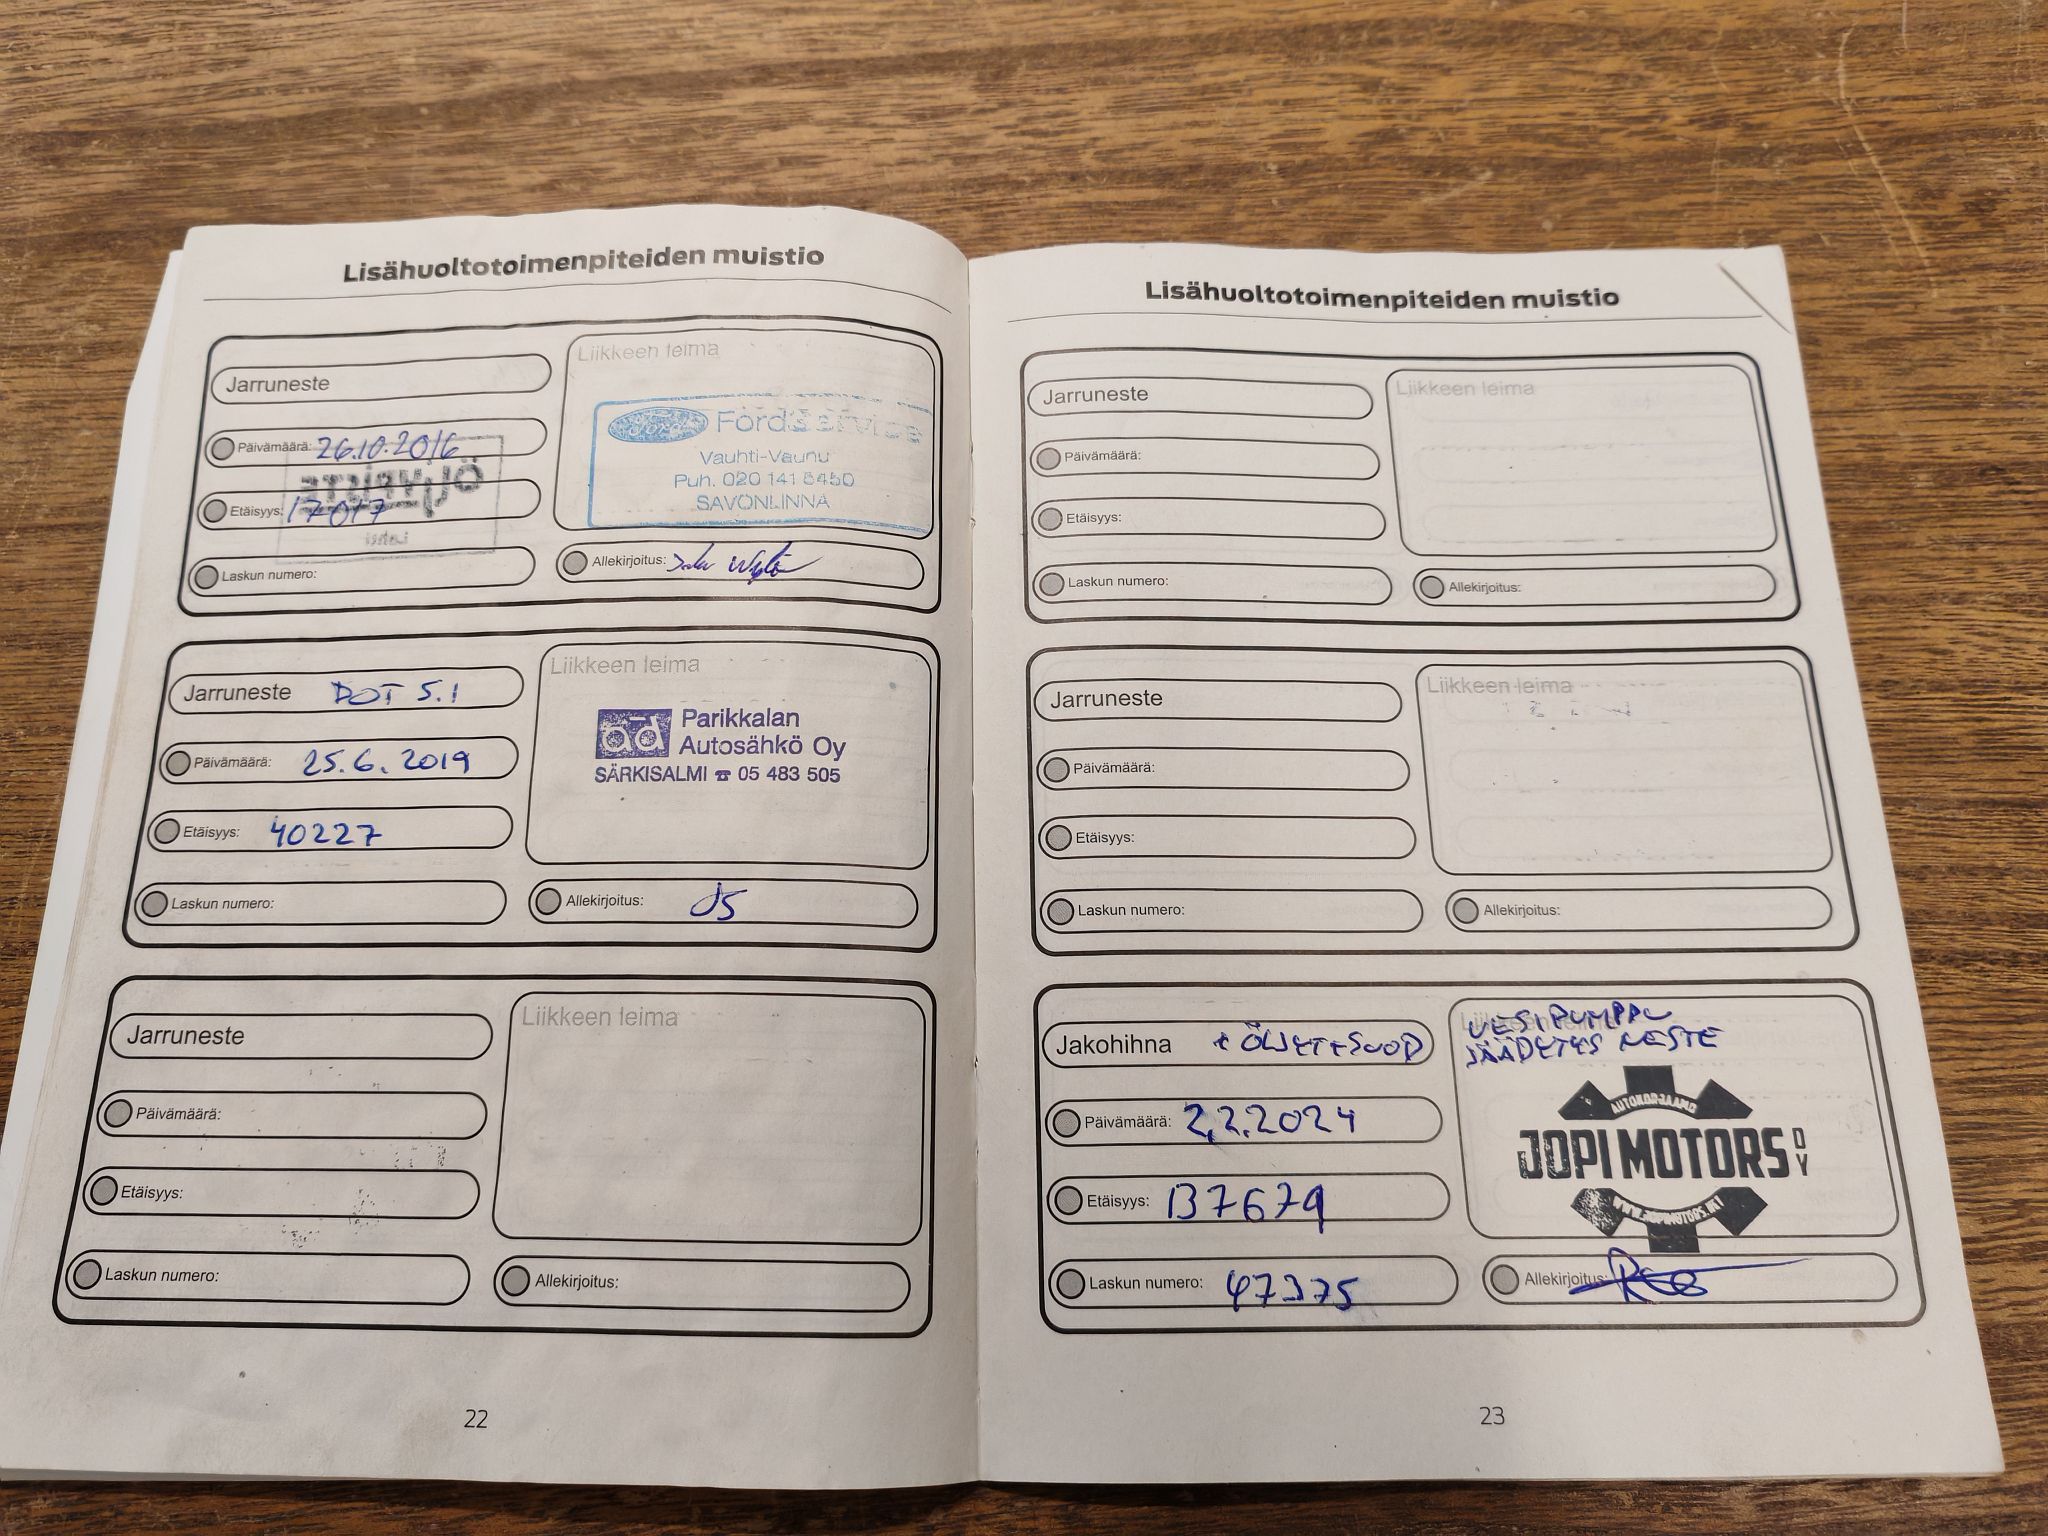 Lisähuoltotoimenpiteiden muistio
Jarruneste
Liikkeen leima
Päivämäärä: 26.10.2016
Ford Service
Vauhti-Vaunu
Puh. 020 141 5450
SAVONLINNA
Etäisyys: 17017
Laskun numero:
Allekirjoitus:
Jarruneste DOT 5.1
Liikkeen leima
ad Parikkalan
Autosähkö Oy
SÄRKISALMI ☎ 05 483 505
Päivämäärä: 25.6.2019
Etäisyys: 40227
Laskun numero:
Allekirjoitus: JS
Jarruneste
Liikkeen leima
Päivämäärä:
Etäisyys:
Laskun numero:
Allekirjoitus:
22
Lisähuoltotoimenpiteiden muistio
Jarruneste
Liikkeen leima
Päivämäärä:
Etäisyys:
Laskun numero:
Allekirjoitus:
Jarruneste
Liikkeen leima
Päivämäärä:
Etäisyys:
Laskun numero:
Allekirjoitus:
Jakohihna + ÖLJY + SUOD
VESIPUMPPU
JÄÄDYTYS NESTE
AUTOKORJAAMO
JOPI MOTORS OY
WWW.JOPIMOTORS.NET
Päivämäärä: 2.2.2024
Etäisyys: 137679
Laskun numero: 47375
Allekirjoitus:
23